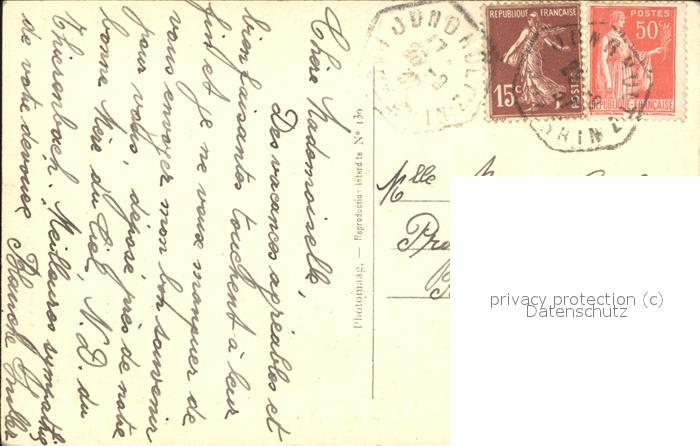 Chère Mademoiselle,
Des vacances agréables et
bienfaisantes touchent à leur
fin et je ne veux manquer de
vous envoyer mon bon souvenir
pour vous, déposé près de notre
bonne Mère du Ciel, N. D. du
Thierenbach. Meilleures sympathies
de votre dévouée Blanche
Photomaag. — Reproduction interdite № 130
JUNGHOLTZ
RHIN
REPUBLIQUE FRANÇAISE
15c
POSTES
50c
REPUBLIQUE FRANÇAISE
Mlle
privacy protection (c)
Datenschutz